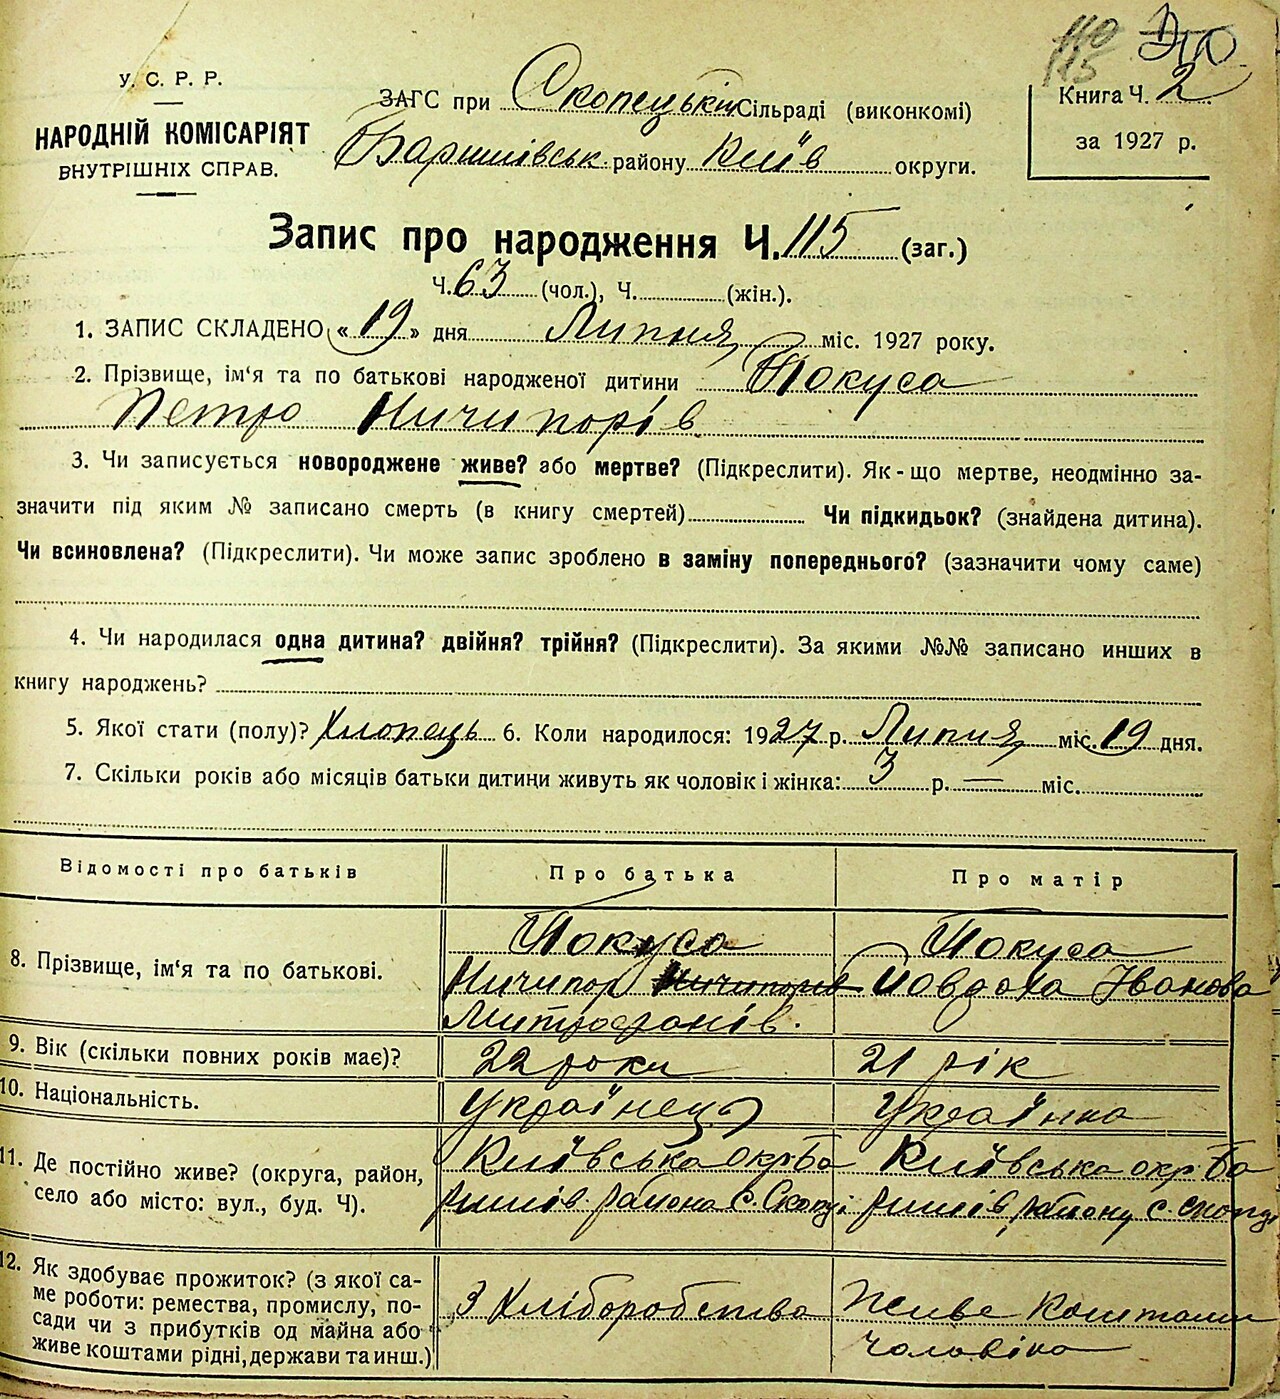 110
115
У. С. Р. Р.
НАРОДНІЙ КОМІСАРІЯТ
ВНУТРІШНІХ СПРАВ.
ЗАГС при Скопецькій Сільраді (виконкомі)
Баришівськ. району Київ округи.
Книга Ч. 2
за 1927 р.
Запис про народження Ч. 115 (заг.)
Ч. 63 (чол.), Ч. (жін.).
1. ЗАПИС СКЛАДЕНО « 19 » дня Липня міс. 1927 року.
2. Прізвище, ім‘я та по батькові народженої дитини Покуса
Петро Ничипорів
3. Чи записується новороджене живе? або мертве? (Підкреслити). Як-що мертве, неодмінно за-
значити під яким № записано смерть (в книгу смертей) Чи підкидьок? (знайдена дитина).
Чи всиновлена? (Підкреслити). Чи може запис зроблено в заміну попереднього? (зазначити чому саме)
4. Чи народилася одна дитина? двійня? трійня? (Підкреслити). За якими №№ записано инших в
книгу народжень?
5. Якої стати (полу)? Хлопець 6. Коли народилося: 1927 р. Липня міс. 19 дня.
7. Скільки років або місяців батьки дитини живуть як чоловік і жінка: 3 р. — міс.
Відомості про батьків Про батька Про матір
8. Прізвище, ім‘я та по батькові.
Покуса
Ничипор Ничипорів
Митрофанів.
Покуса
Явдоха Іванова
9. Вік (скільки повних років має)? 22 роки 21 рік
10. Національність. Українець Українка
11. Де постійно живе? (округа, район,
село або місто: вул., буд. Ч).
Київська окр. Ба
ришів. района с. Скопці
Київська окр. Ба
ришів. району с. Скопці
12. Як здобуває прожиток? (з якої са-
ме роботи: ремества, промислу, по-
сади чи з прибутків од майна або
живе коштами рідні, держави та инш.)
З Хліборобства
Живе коштами
чоловіка